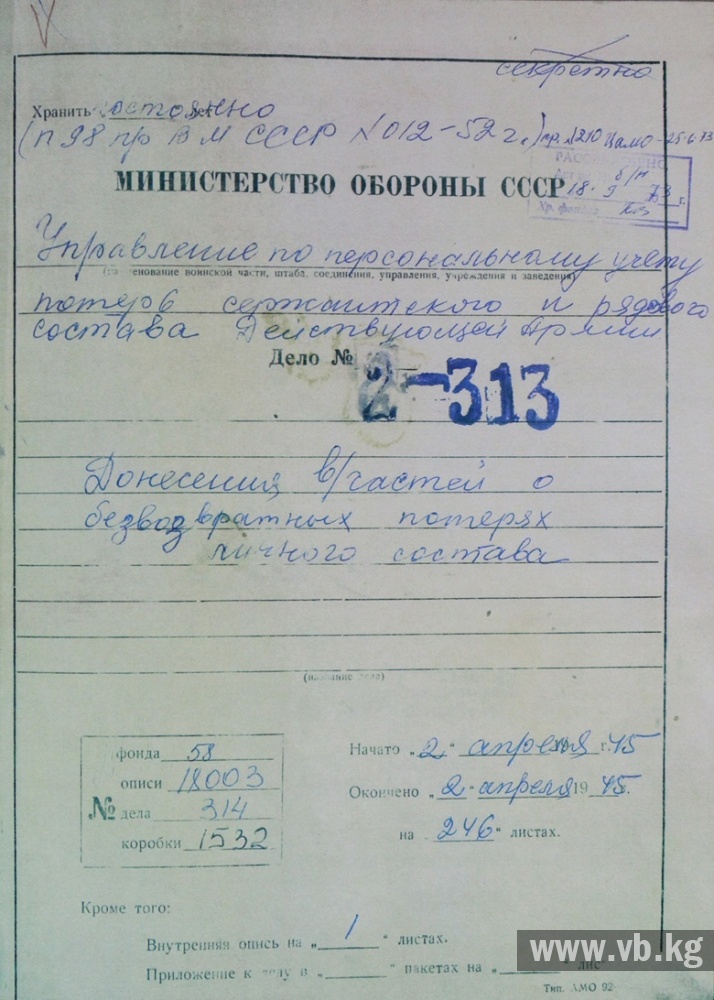 секретно
Хранить постоянно лет
(п 98 пр В М СССР №012-52 г.) пр. №210 ЦАМО-25-6-73
РАССЕКРЕЧЕНО
б/н
18. 9 73 г.
МИНИСТЕРСТВО ОБОРОНЫ СССР
Управление по персональному учету
(наименование воинской части, штаба, соединения, управления, учреждения и заведения)
потерь сержантского и рядового
состава Действующей Армии
Дело №
2-313
Донесения в/частей о
безвозвратных потерях
личного состава
(название дела)
фонда 58
описи 18003
№ дела 314
коробки 1532
Начато „2“ апреля г. 45
Окончено „2“ апреля 19 45.
на „246“ листах.
Кроме того:
Внутренняя опись на „1“ листах.
Приложение к делу в „ “ пакетах на „ “ лис
Тип. АМО 92
www.vb.kg